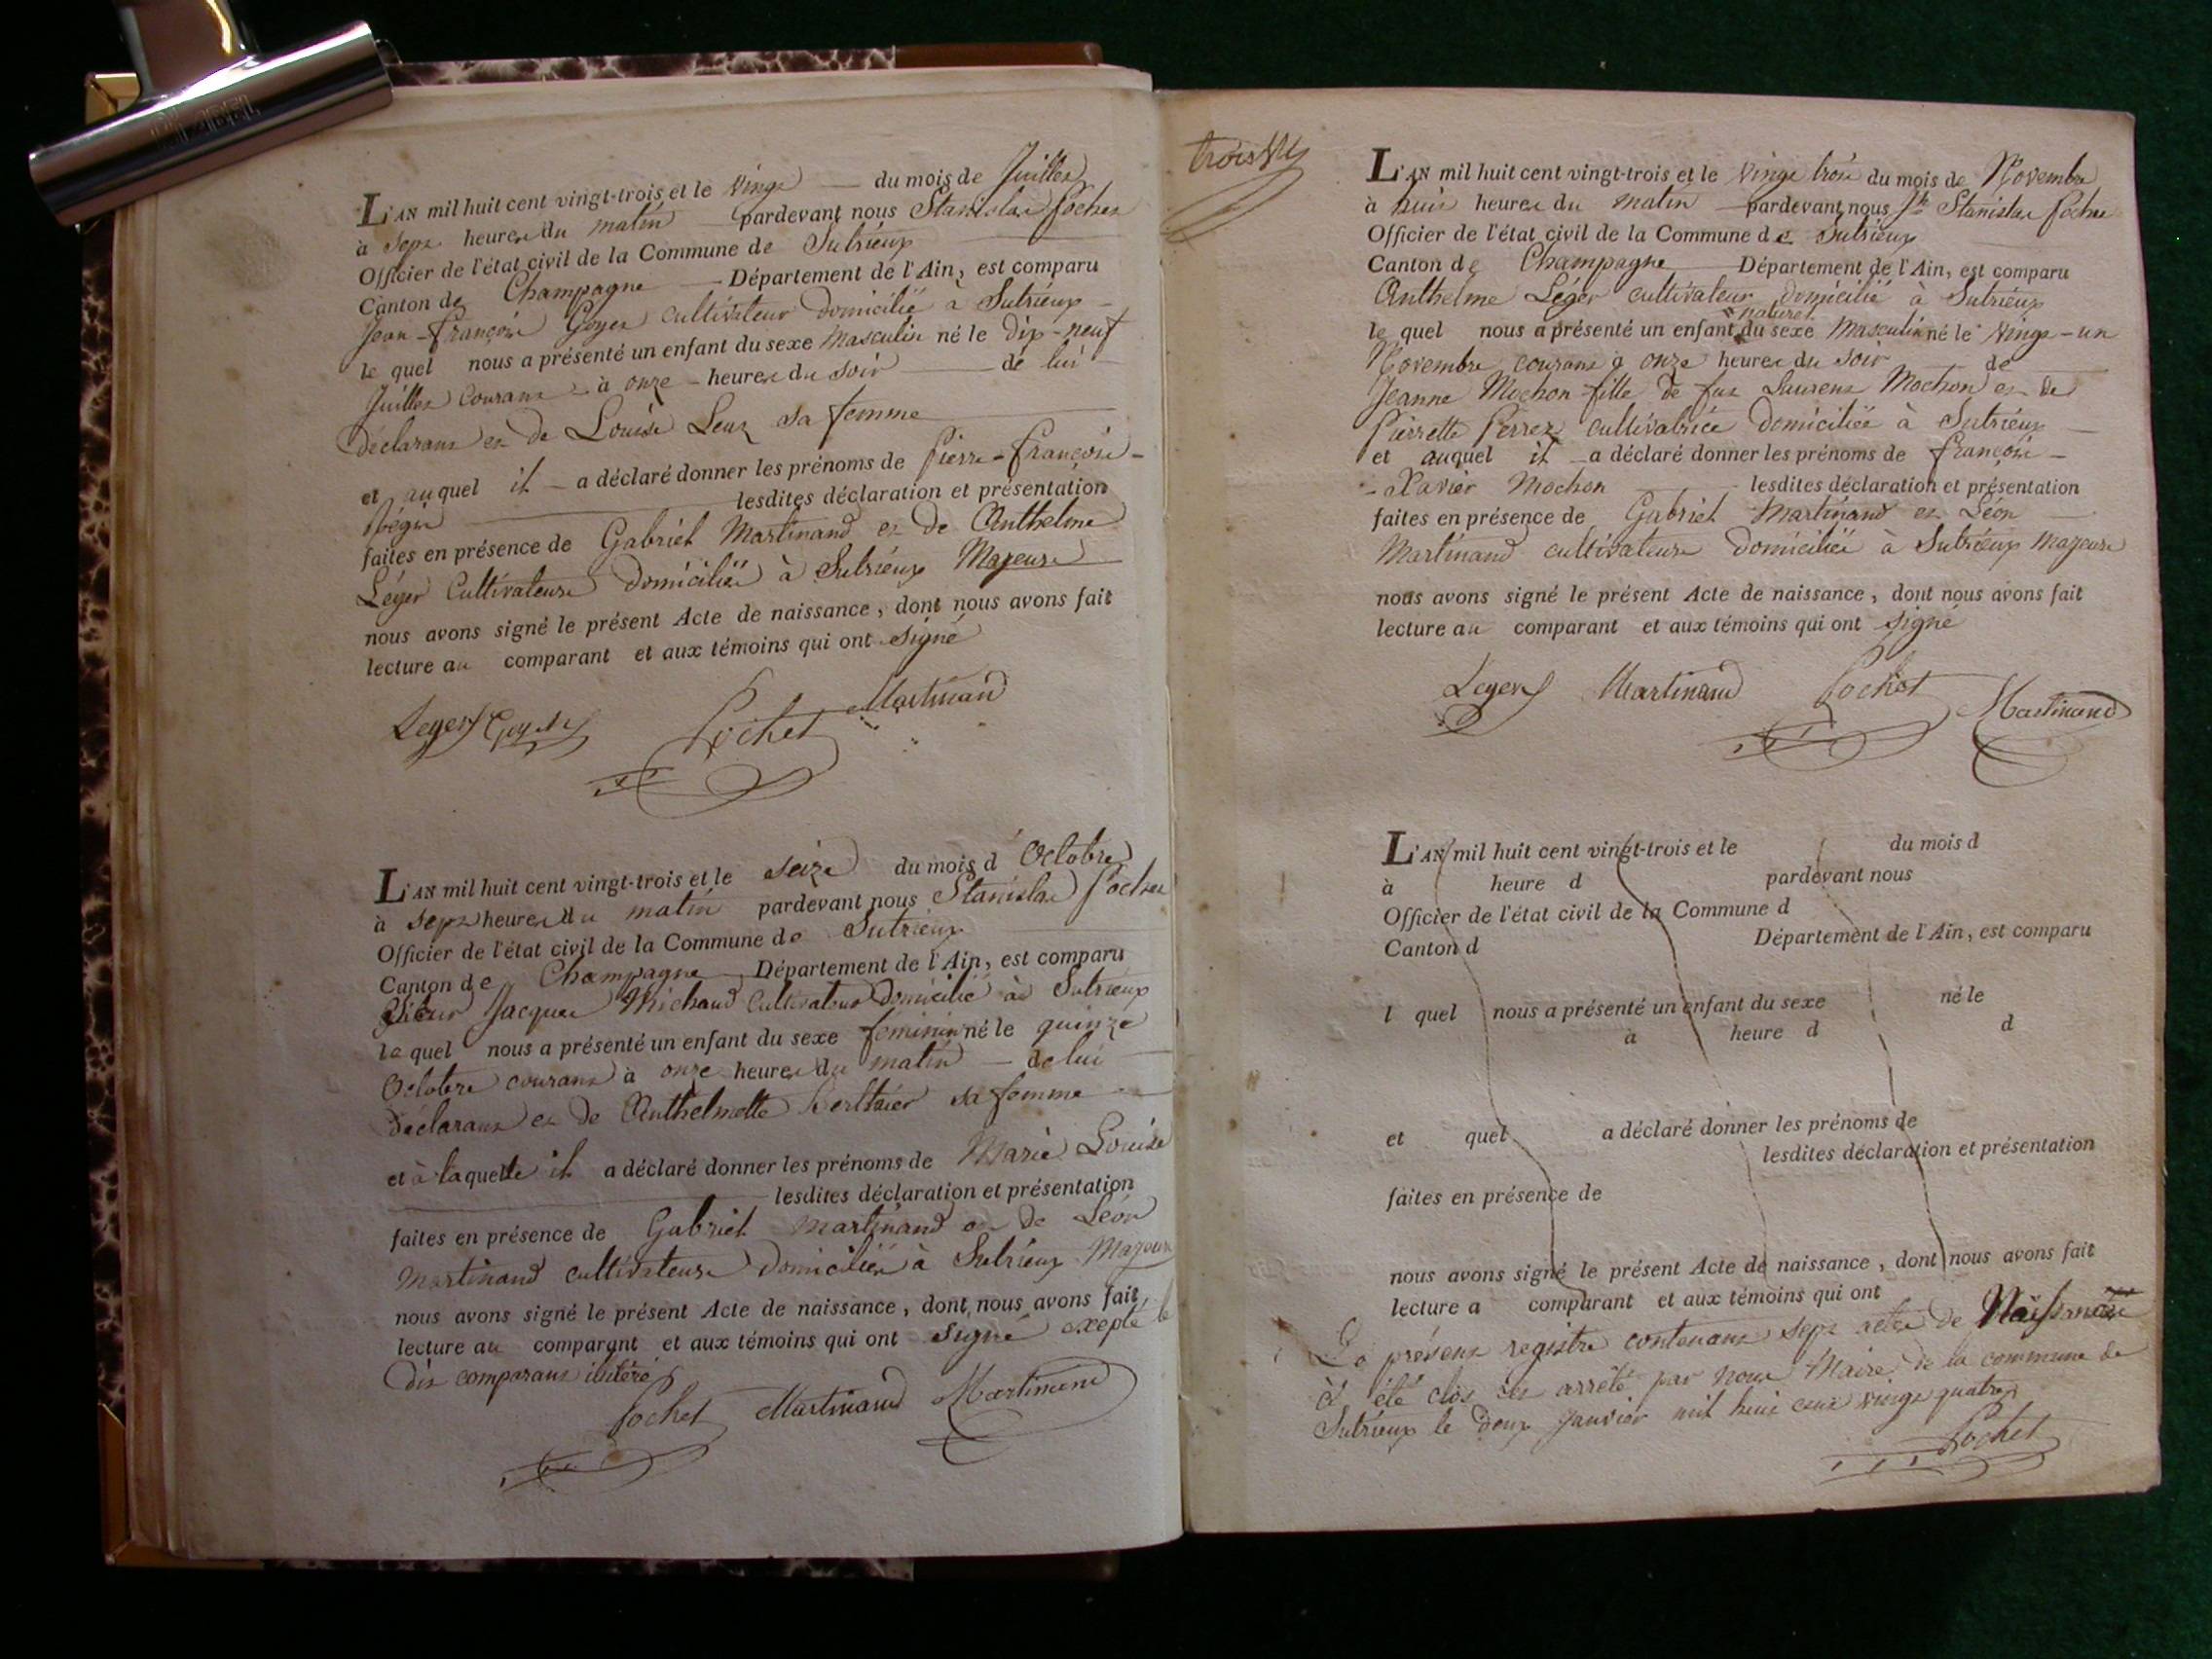 L'AN mil huit cent vingt-trois et le vingt du mois de Juillet
à sept heures du matin pardevant nous Stanislas Pochet
Officier de l'état civil de la Commune de Sutrieux
Canton de Champagne Département de l'Ain, est comparu
Jean-François Goyet cultivateur domicilié à Sutrieux
le quel nous a présenté un enfant du sexe masculin né le dix-neuf
Juillet courant à onze heures du soir de lui
déclarant et de Louise sa femme
et auquel il a déclaré donner les prénoms de Pierre-François-
Régis lesdites déclaration et présentation
faites en présence de Gabriel Martinand et de Anthelme
Léger Cultivateurs domiciliés à Sutrieux Majeurs
nous avons signé le présent Acte de naissance, dont nous avons fait
lecture au comparant et aux témoins qui ont signé
Leger Goyet Pochet Martinand
L'AN mil huit cent vingt-trois et le seize du mois d'Octobre
à sept heures du matin pardevant nous Stanislas Pochet
Officier de l'état civil de la Commune de Sutrieux
Canton de Champagne Département de l'Ain, est comparu
Jacques Michaud cultivateur domicilié à Sutrieux
le quel nous a présenté un enfant du sexe féminin né le quinze
Octobre courant à onze heures du matin de lui
déclarant et de Anthelmette Berthier sa femme
et à laquelle il a déclaré donner les prénoms de Marie Louise
lesdites déclaration et présentation
faites en présence de Gabriel Martinand et de Léon
Martinand cultivateurs domiciliés à Sutrieux Majeurs
nous avons signé le présent Acte de naissance, dont nous avons fait
lecture au comparant et aux témoins qui ont signé exepté le
dit comparant ilitéré
Pochet Martinand Martinand
trois
L'AN mil huit cent vingt-trois et le vingt trois du mois de Novembre
à huit heures du matin pardevant nous Jh Stanislas Pochet
Officier de l'état civil de la Commune de Sutrieux
Canton de Champagne Département de l'Ain, est comparu
Anthelme Léger cultivateur domicilié à Sutrieux
naturel
le quel nous a présenté un enfant du sexe masculin né le vingt-un
Novembre courant à onze heures du soir de
Jeanne Mochon fille de fut Laurent Mochon et de
Pierrette Perret cultivatrice domiciliée à Sutrieux
et auquel il a déclaré donner les prénoms de François-
-Xavier Mochon lesdites déclaration et présentation
faites en présence de Gabriel Martinand et Léon
Martinand cultivateurs domiciliés à Sutrieux majeurs
nous avons signé le présent Acte de naissance, dont nous avons fait
lecture au comparant et aux témoins qui ont signé
Leger Martinand Pochet Martinand
L'AN mil huit cent vingt-trois et le du mois d
à heure d pardevant nous
Officier de l'état civil de la Commune d
Canton d Département de l'Ain, est comparu
l quel nous a présenté un enfant du sexe né le
à heure d d
et quel a déclaré donner les prénoms de
lesdites déclaration et présentation
faites en présence de
nous avons signé le présent Acte de naissance, dont nous avons fait
lecture a comparant et aux témoins qui ont
Le présent registre contenant sept actes de Naissance
à été clos et arrêté par nous Maire de la commune de
Sutrieux le deux Janvier mil huit cent vingt quatre
Pochet